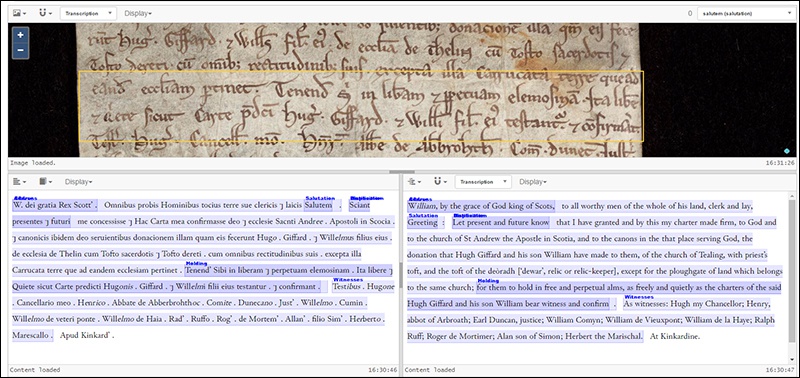 Transcription Display 0 salutem (salutation)
Hug. Giffard. ⁊ Will's fil' ei' de ecclia de Thelin cū Tofto sacerdotis ⁊
Tofto dereti cū omib; rectitudinib; suis. excepta illa Carrucata terre que ad
eand' eccliam ptinet. Tenend' in libam ⁊ ppetuam elemosinā. Ita libe
sicut Carte Hug'. Giffard. ⁊ Willi fil' ei' testant'. ⁊
Test'. Hug'. Cancell'. mo. Abbe de Com. Dunec. Just
Image loaded. 16:31:26
Display
Address
W. dei gratia Rex Scott'. Omnibus probis Hominibus tocius terre sue clericis ⁊ laicis Salutem . Sciant
Salutation
presentes ⁊ futuri me concessisse ⁊ Hac Carta mea confirmasse deo ⁊ ecclesie Sacnti Andree . Apostoli in Scocia .
⁊ canonicis ibidem deo seruientibus donacionem illam quam eis fecerunt Hugo . Giffard . ⁊ Willelmus filius eius .
de ecclesia de Thelin cum Tofto sacerdotis ⁊ Tofto dereti . cum omnibus rectitudinibus suis . excepta illa
Carrucata terre que ad eandem ecclesiam pertinet . Tenend' Sibi in liberam ⁊ perpetuam elemosinam . Ita libere ⁊
Holding
Quiete sicut Carte predicti Hugonis . Giffard . ⁊ Willelmi filii eius testantur . ⁊ confirmant . Testibus . Hugone
Witnesses
. Cancellario meo . Henrico . Abbate de Abberbrothoc . Comite . Dunecano . Just' . Willelmo . Cumin .
Willelmo de veteri ponte . Willelmo de Haia . Rad' . Ruffo . Rog' . de Mortem' . Allan' . filio Sim' . Herberto .
Marescallo . Apud Kinkard' .
Content loaded 16:30:46
Transcription Display
Address
William, by the grace of God king of Scots, to all worthy men of the whole of his land, clerk and lay,
Salutation
Greeting : Let present and future know that I have granted and by this my charter made firm, to God and
to the church of St Andrew the Apostle in Scotia, and to the canons in that place serving God, the
donation that Hugh Giffard and his son William have made to them, of the church of Tealing, with priest's
toft, and the toft of the deòradh ['dewar', relic or relic-keeper], except for the ploughgate of land which belongs
Holding
to the same church; for them to hold in free and perpetual alms, as freely and quietly as the charters of the said
Witnesses
Hugh Giffard and his son William bear witness and confirm . As witnesses: Hugh my Chancellor; Henry,
abbot of Arbroath; Earl Duncan, justice; William Comyn; William de Vieuxpont; William de la Haye; Ralph
Ruff; Roger de Mortimer; Alan son of Simon; Herbert the Marischal. At Kinkardine.
Content loaded 16:30:47